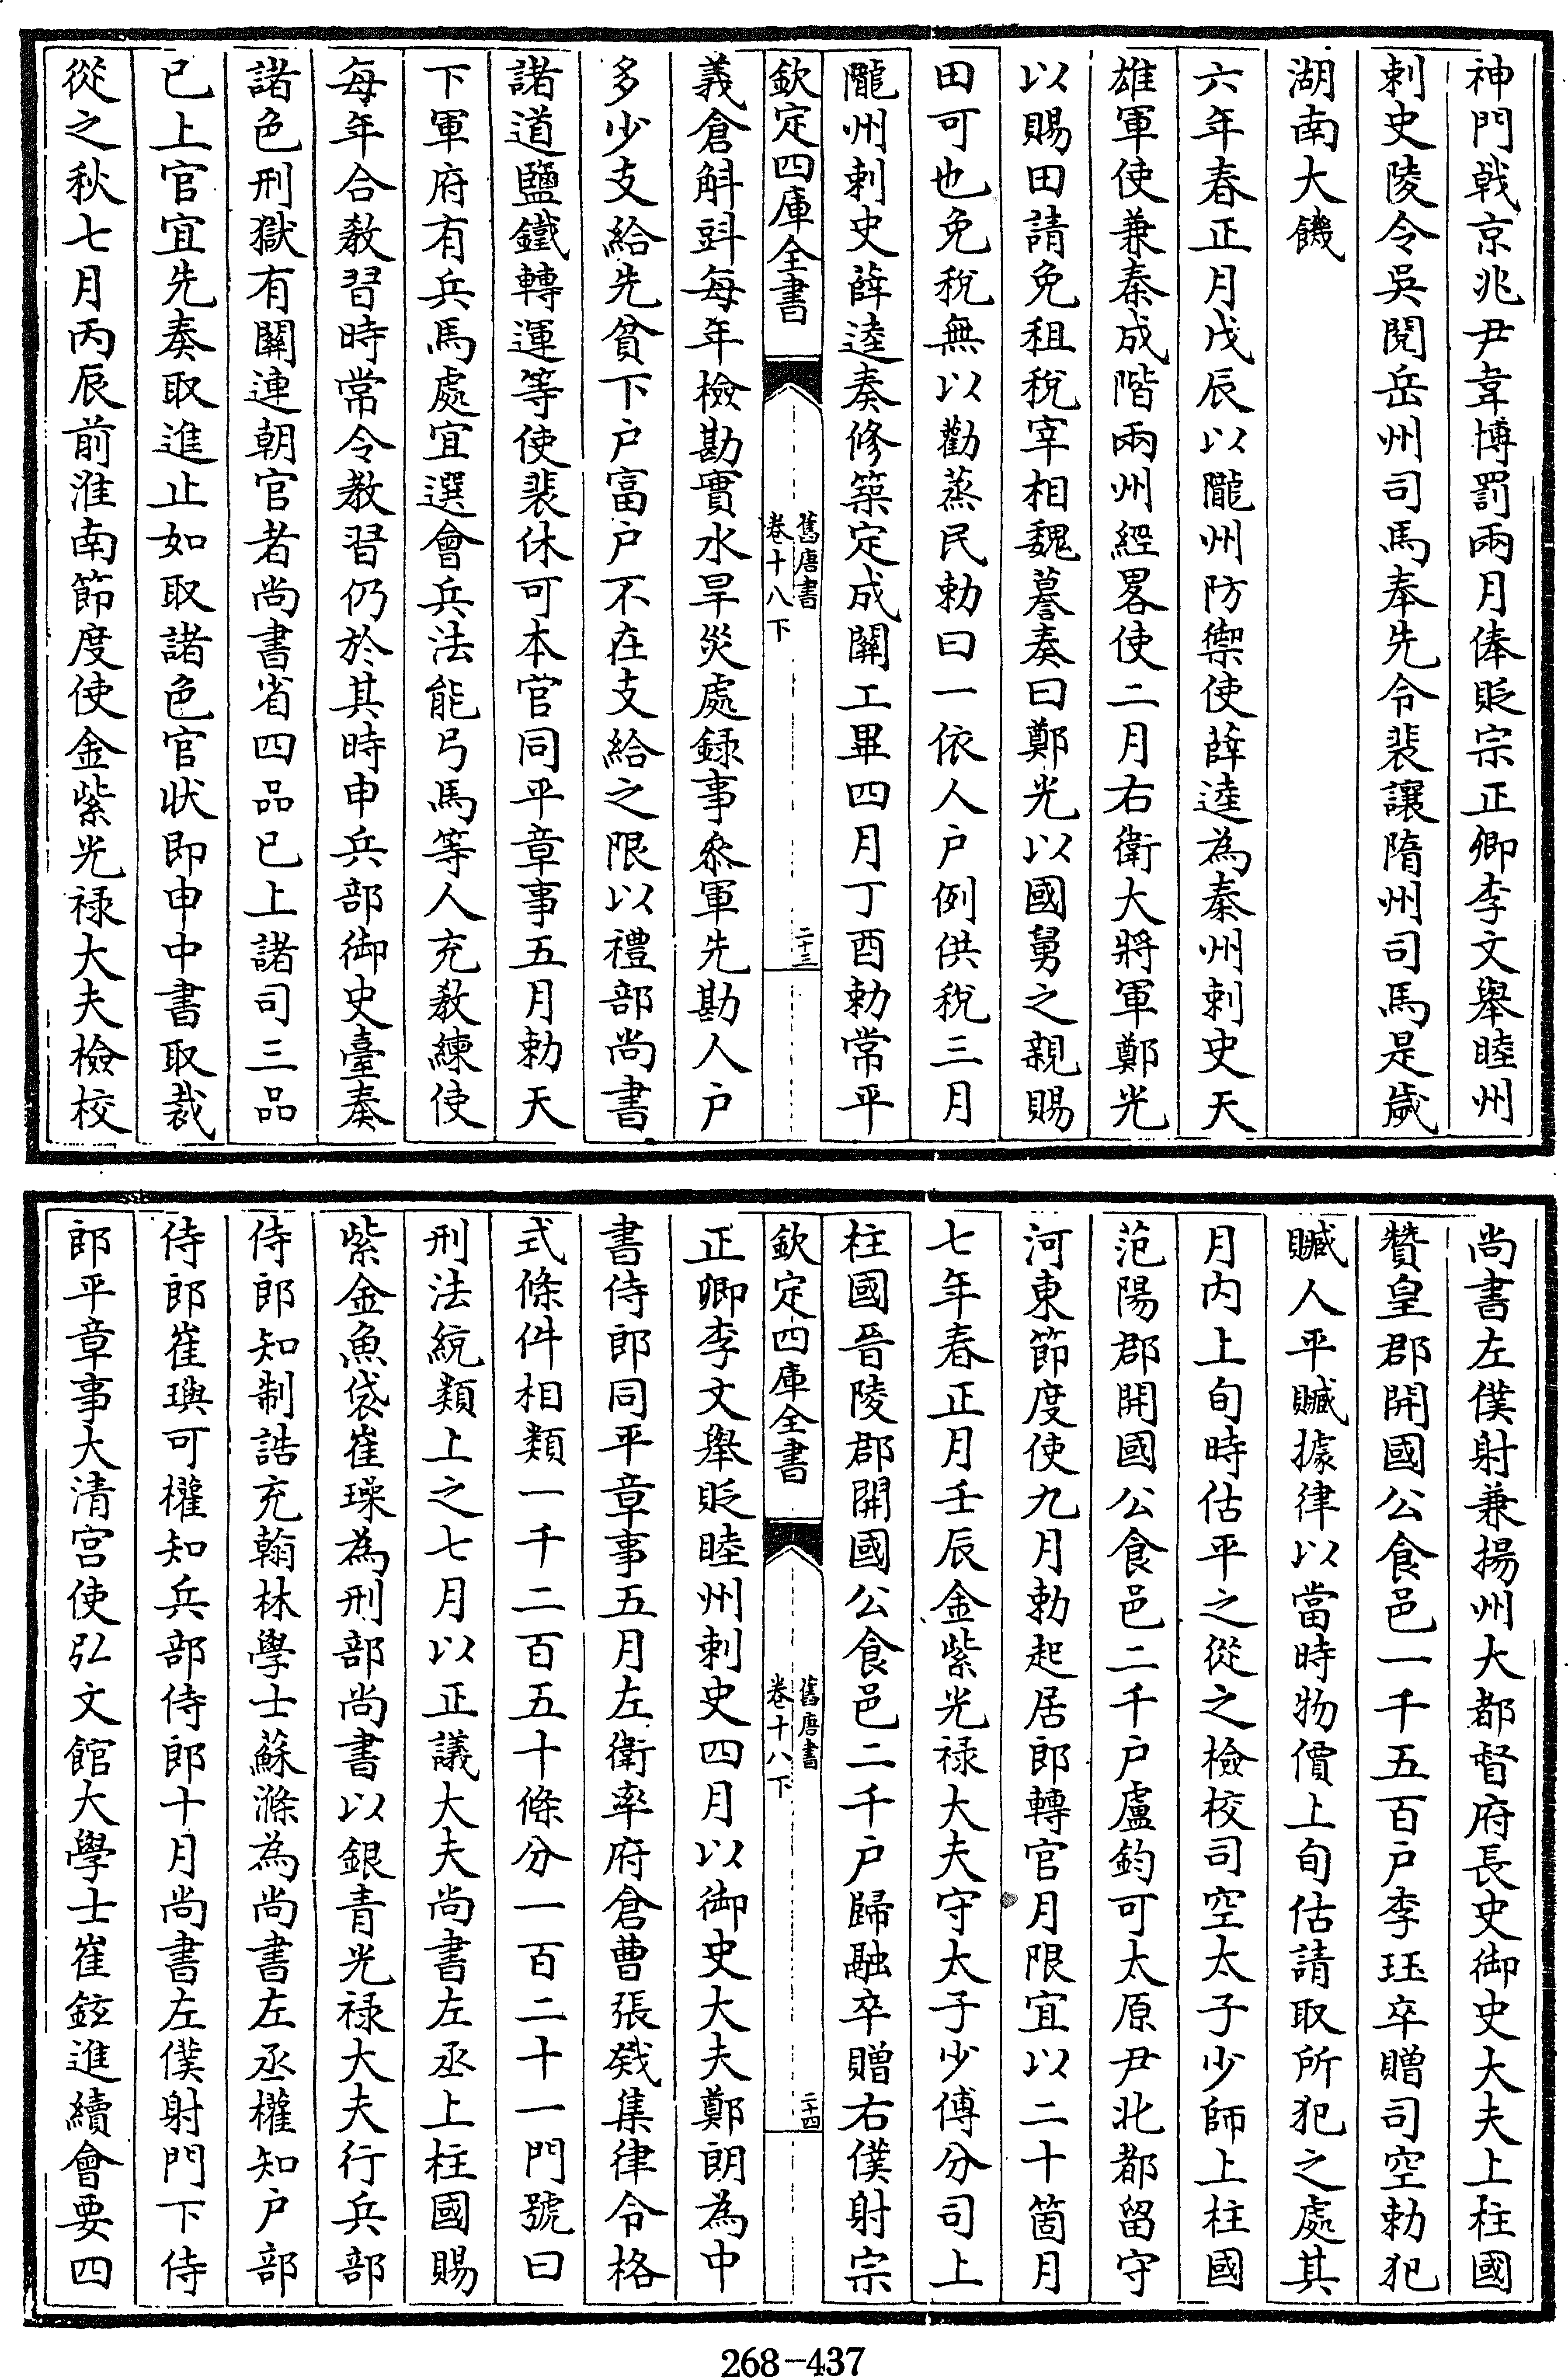 神門㦸京兆尹韋博罰兩月俸貶宗正卿李文舉睦州
刺史陵令吳閱岳州司馬奉先令裴讓隋州司馬是歲
湖南大饑
六年春正月戊辰以隴州防禦使薛逵為秦州刺史天
雄軍使兼秦成階兩州經畧使二月右衛大將軍鄭光
以賜田請免租稅宰相魏謩奏曰鄭光以國舅之親賜
田可也免稅無以勸蒸民勅曰一依人户例供稅三月
隴州刺史薛逵奏修築定成關工畢四月丁酉勅常平
欽定四庫全書
舊唐書
卷十八下
二十三
義倉斛㪷每年檢勘實水旱災處録事叅軍先勘人户
多少支給先貧下户富户不在支給之限以禮部尚書
諸道鹽鐵轉運等使裴休可本官同平章事五月勅天
下軍府有兵馬處宜選會兵法能弓馬等人充教練使
每年合教習時常令教習仍於其時申兵部御史臺奏
諸色刑獄有關連朝官者尚書省四品已上諸司三品
已上官宜先奏取進止如取諸色官狀即申中書取裁
從之秋七月丙辰前淮南節度使金紫光禄大夫檢校
尚書左僕射兼揚州大都督府長史御史大夫上柱國
贊皇郡開國公食邑一千五百户李珏卒贈司空勅犯
贓人平贓據律以當時物價上旬估請取所犯之處其
月内上旬時估平之從之檢校司空太子少師上柱國
范陽郡開國公食邑二千户盧鈞可太原尹北都留守
河東節度使九月勅起居郎轉官月限宜以二十箇月
七年春正月壬辰金紫光禄大夫守太子少傅分司上
柱國晉陵郡開國公食邑二千户歸融卒贈右僕射宗
欽定四庫全書
舊唐書
卷十八下
二十四
正卿李文舉貶睦州刺史四月以御史大夫鄭朗為中
書侍郎同平章事五月左衛率府倉曹張戣集律令格
式條件相類一千二百五十條分一百二十一門號曰
刑法統類上之七月以正議大夫尚書左丞上柱國賜
紫金魚袋崔璪為刑部尚書以銀青光禄大夫行兵部
侍郎知制誥充翰林學士蘇滌為尚書左丞權知户部
侍郎崔璵可權知兵部侍郎十月尚書左僕射門下侍
郎平章事大清宫使弘文館大學士崔鉉進續會要四
268-437